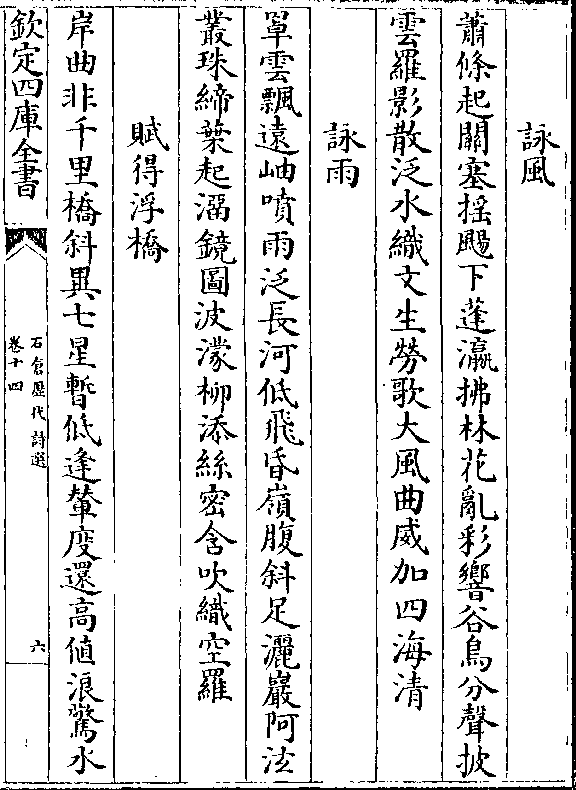 詠風
蕭條起關塞揺颺下蓬瀛拂林花亂彩響谷鳥分聲披
雲羅影散泛水織文生勞歌大風曲威加四海清
詠雨
罩雲飄遠岫噴雨泛長河低飛昏嶺腹斜足灑巖阿泫
叢珠締葉起溜鏡圖波濛柳添絲密含吹織空羅
賦得浮橋
岸曲非千里橋斜異七星暫低逢輦度還高值浪驚水
欽定四庫全書
石倉歷代詩選
卷十四
六